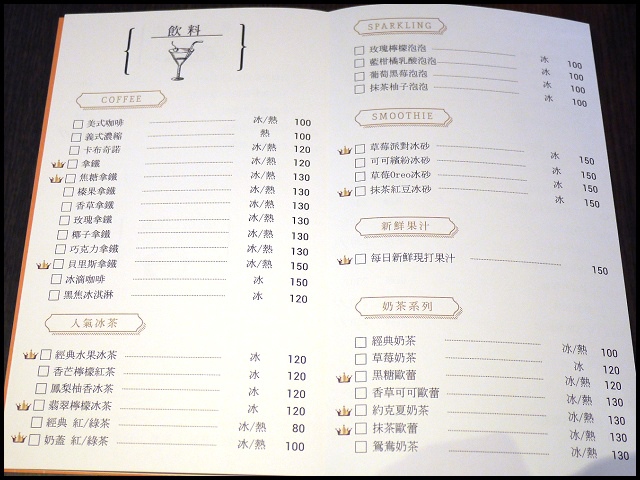 飲料
COFFEE
美式咖啡 冰/熱 100
義式濃縮 熱 100
卡布奇諾 冰/熱 120
拿鐵 冰/熱 120
焦糖拿鐵 冰/熱 130
榛果拿鐵 冰/熱 130
香草拿鐵 冰/熱 130
玫瑰拿鐵 冰/熱 130
椰子拿鐵 冰/熱 130
巧克力拿鐵 冰/熱 130
貝里斯拿鐵 冰/熱 150
冰滴咖啡 冰 150
黑焦冰淇淋 冰 120
人氣冰茶
經典水果冰茶 冰 120
香芒檸檬紅茶 冰 120
鳳梨柚香冰茶 冰 120
翡翠檸檬冰茶 冰 120
經典 紅/綠茶 冰/熱 80
奶蓋 紅/綠茶 冰/熱 100
SPARKLING
玫瑰檸檬泡泡 冰 100
藍柑橘乳酸泡泡 冰 100
葡萄黑莓泡泡 冰 100
抹茶柚子泡泡 冰 100
SMOOTHIE
草莓派對冰砂 冰 150
可可繽紛冰砂 冰 150
草莓Oreo冰砂 冰 150
抹茶紅豆冰砂 冰 150
新鮮果汁
每日新鮮現打果汁 150
奶茶系列
經典奶茶 冰/熱 100
草莓奶茶 冰 120
黑糖歐蕾 冰/熱 120
香草可可歐蕾 冰/熱 130
約克夏奶茶 冰/熱 130
抹茶歐蕾 冰/熱 130
鴛鴦奶茶 冰/熱 130